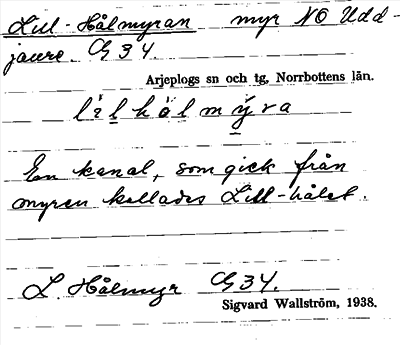 Lill-Hålmyran myr NO Udd-
jaure. Cg 34.
Arjeplogs sn och tg, Norrbottens län.
En kanal, som gick från
myren kallades Lill-hålet.
L. Hålmyr Cg 34.
Sigvard Wallström, 1938.